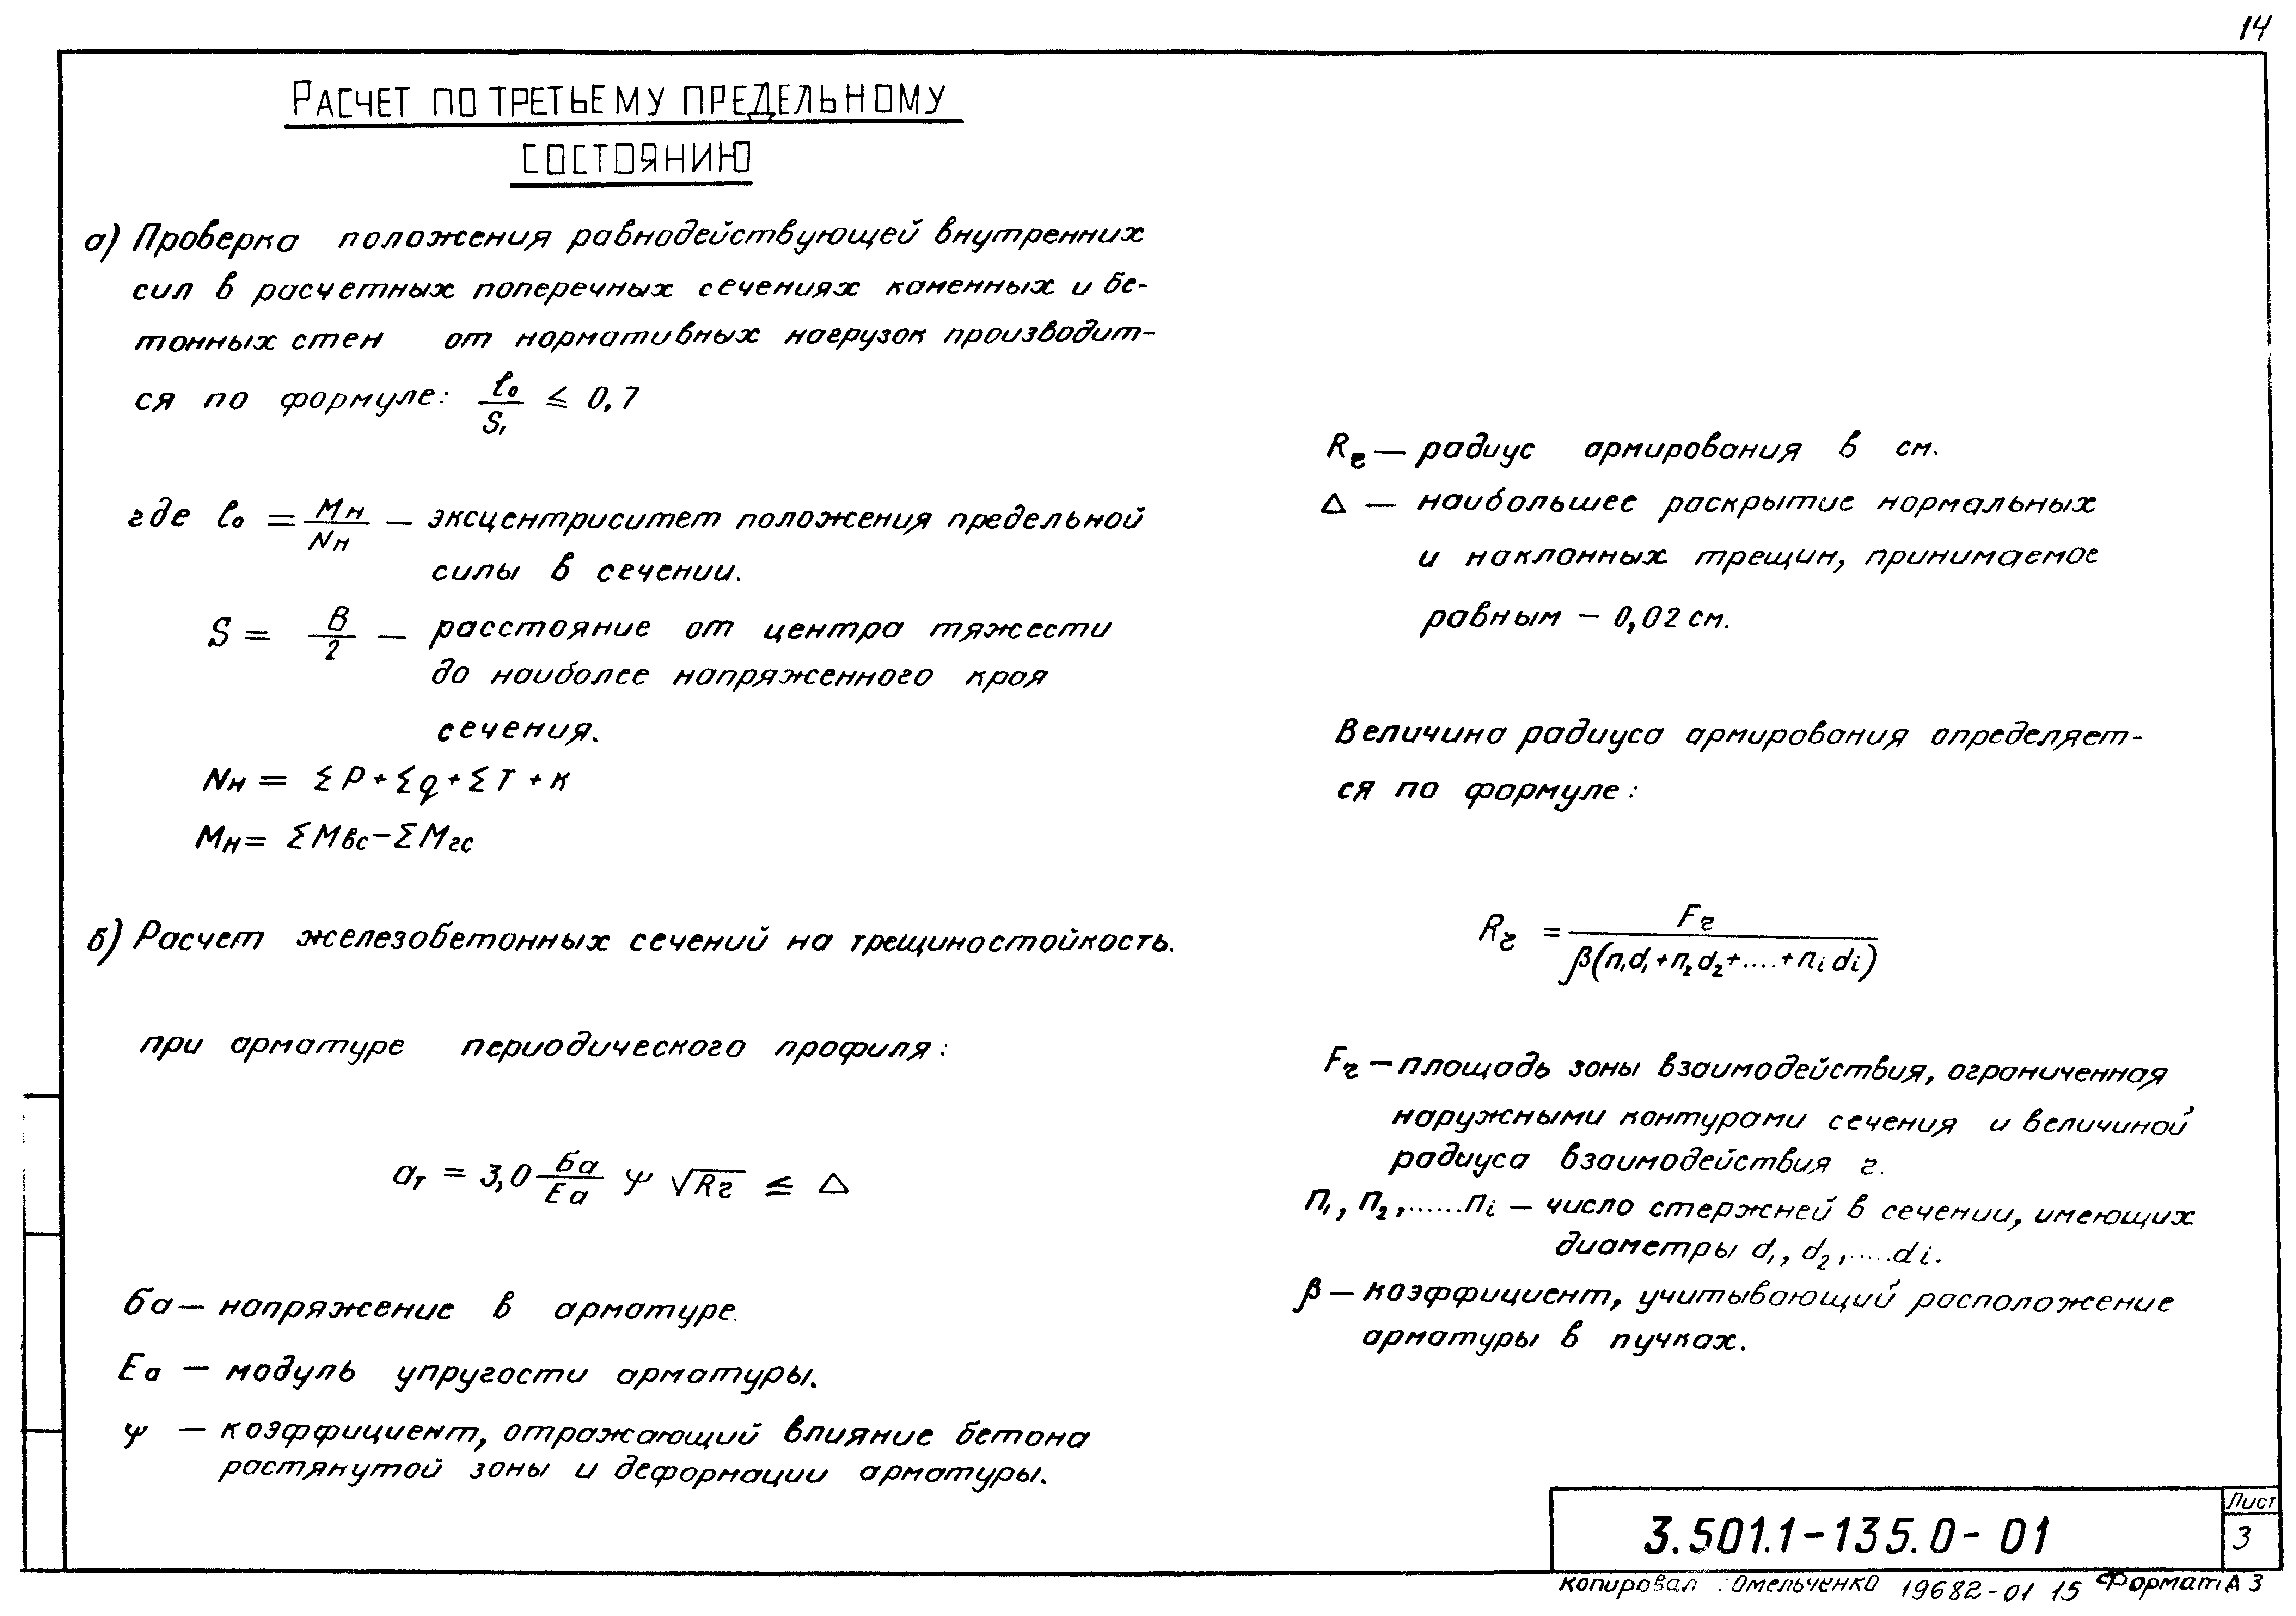 14
РАСЧЕТ ПО ТРЕТЬЕМУ ПРЕДЕЛЬНОМУ
СОСТОЯНИЮ
а) Проверка положения равнодействующей внутренних
сил в расчетных поперечных сечениях каменных и бе-
тонных стен от нормативных нагрузок производит-
ся по формуле: ℓ₀/S₁ ≤ 0,7
где ℓ₀ = Мн/Nн — эксцентриситет положения предельной
силы в сечении.
S = В/2 — расстояние от центра тяжести
до наиболее напряженного края
сечения.
Nн = ΣP + Σq + ΣT + К
Мн = ΣМвс − ΣМгс
б) Расчет железобетонных сечений на трещиностойкость.
при арматуре периодического профиля:
aт = 3,0 бa/Ea ψ √Rг ≤ Δ
бa — напряжение в арматуре.
Ea — модуль упругости арматуры.
ψ — коэффициент, отражающий влияние бетона
растянутой зоны и деформации арматуры.
Rг — радиус армирования в см.
Δ — наибольшее раскрытие нормальных
и наклонных трещин, принимаемое
равным — 0,02 см.
Величина радиуса армирования определяет-
ся по формуле:
Rг = Fг/β(n₁d₁+n₂d₂+....+nᵢdᵢ)
Fг — площадь зоны взаимодействия, ограниченная
наружными контурами сечения и величиной
радиуса взаимодействия г.
n₁, n₂,......nᵢ — число стержней в сечении, имеющих
диаметры d₁, d₂,.....dᵢ.
β — коэффициент, учитывающий расположение
арматуры в пучках.
3.501.1-135.0-01
Лист
3
Копировал: Омельченко 19682-01 15 Формат А3